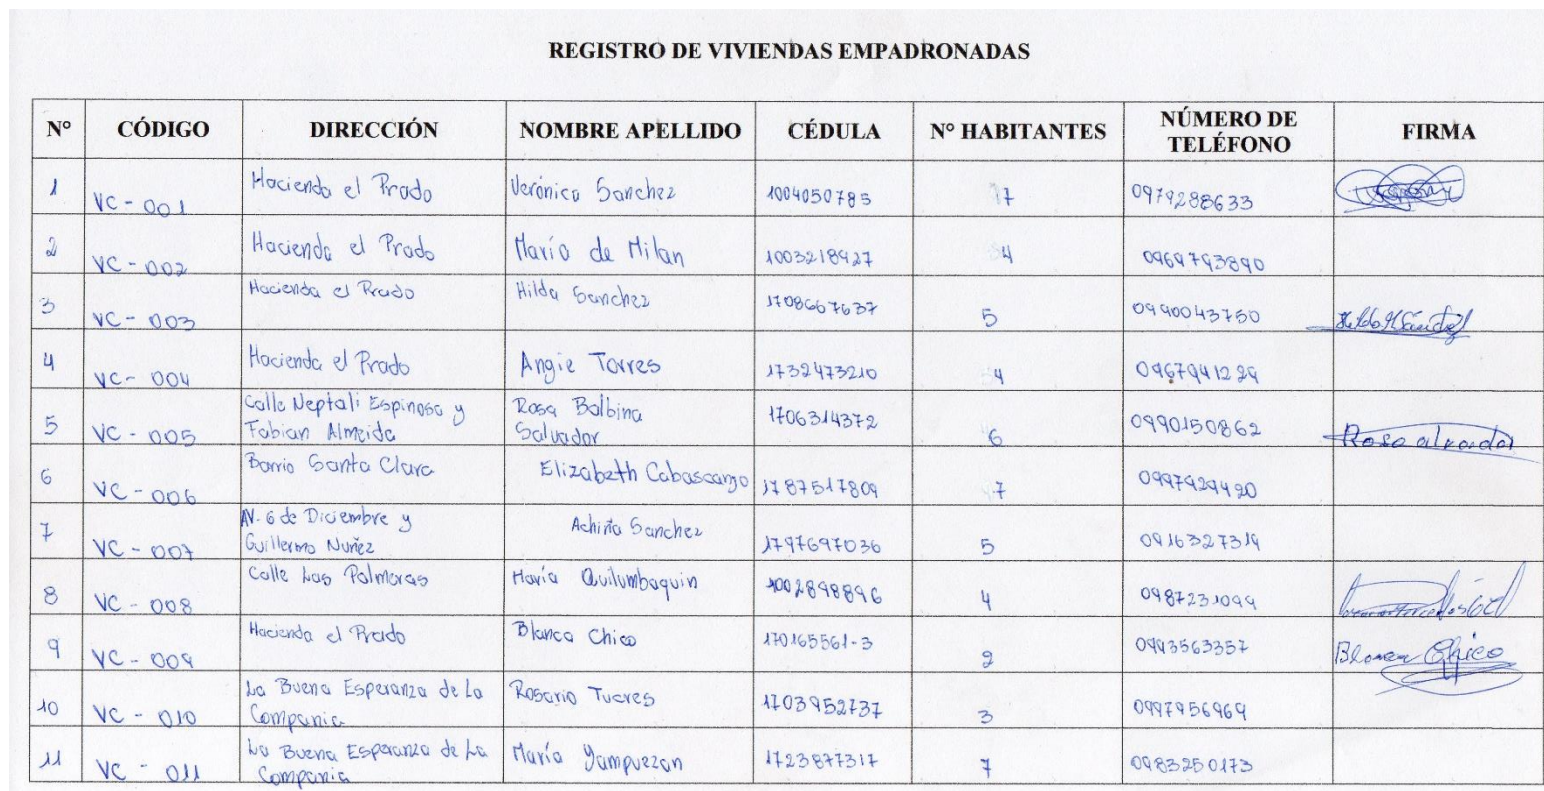 REGISTRO DE VIVIENDAS EMPADRONADAS
N° CÓDIGO DIRECCIÓN NOMBRE APELLIDO CÉDULA N° HABITANTES NÚMERO DE TELÉFONO FIRMA
1 VC-001 Hacienda el Prado Verónica Sanchez 1004050785 17 0979288633
2 VC-002 Hacienda el Prado María de Milan 1003218927 4 0969793890
3 VC-003 Hacienda el Prado Hilda Sanchez 1708667637 5 0990043750
4 VC-004 Hacienda el Prado Angie Torres 1732473210 4 0967941229
5 VC-005 Calle Neptali Espinosa y Rosa Balbina 1706314372 6 0990150862
Fabian Almeida Salvador
6 VC-006 Barrio Santa Clara Elizabeth Cabascango 1787517809 7 0997929490
7 VC-007 AV. 6 de Diciembre y Achiña Sanchez 1797697036 5 0916327319
Guillermo Nuñez
8 VC-008 Calle Las Palmeras María Quilumbaquin 1002898896 4 0987231099
9 VC-009 Hacienda el Prado Blanca Chico 170165561-3 2 0993563357 Blanca Chico
10 VC-010 La Buena Esperanza de La Rosario Tucres 1703952737 3 0997956969
Compania
11 VC-011 La Buena Esperanza de La María Yampuezan 1723877317 7 0983250173
Compania